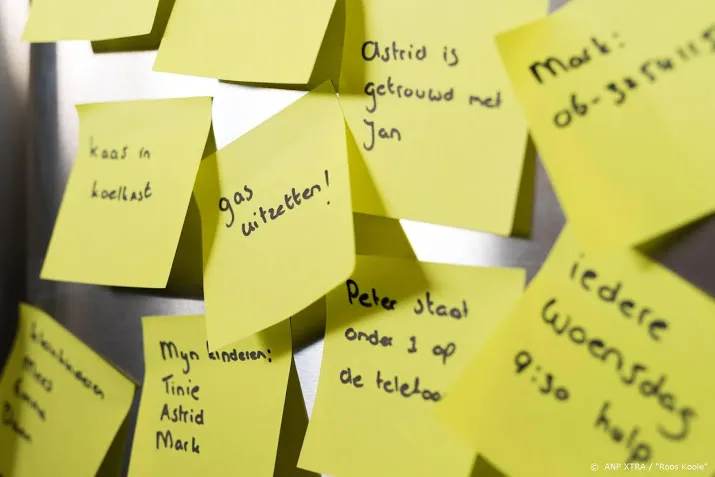 Astrid is
getrouwd met
Jan
Mark:
kaas in
koelkast
gas
uitzetten!
Mijn kinderen:
Tinie
Astrid
Mark
Peter staat
onder 1 op
de telefoo
iedere
woensdag
9:30 hulp
© ANP XTRA / "Roos Koole"